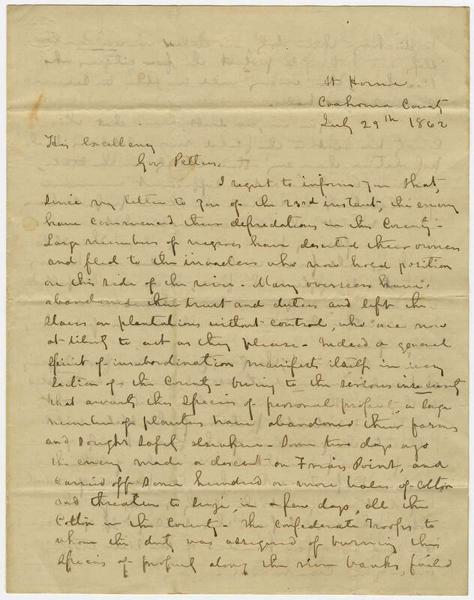 At Home
Coahoma County
July 29th 1862
His Excellency
Gov Pettus,
I regret to inform you that,
since my letter to you of the 23rd instant, the enemy
have commenced their depredations in this County -
Large numbers of negroes have deserted their owners
and fled to the invaders who now hold position
on this side of the river - Many overseers have
abandoned their trust and duties and left the
slaves on plantations without control, who are now
at liberty to act as they please - Indeed a general
spirit of insubordination manifests itself in every
section of the County - owing to the serious insecurity
that awaits this species of personal property, a large
number of planters have abandoned their farms
and sought safety elsewhere - Some two days ago
the enemy made a descent on Friars Point, and
carried off some hundred or more bales of Cotton
and threaten to seize, in a few days, all the
Cotton in the County - The Confederate Troops to
whom the duty was assigned of burning this
species of property along the river banks, failed